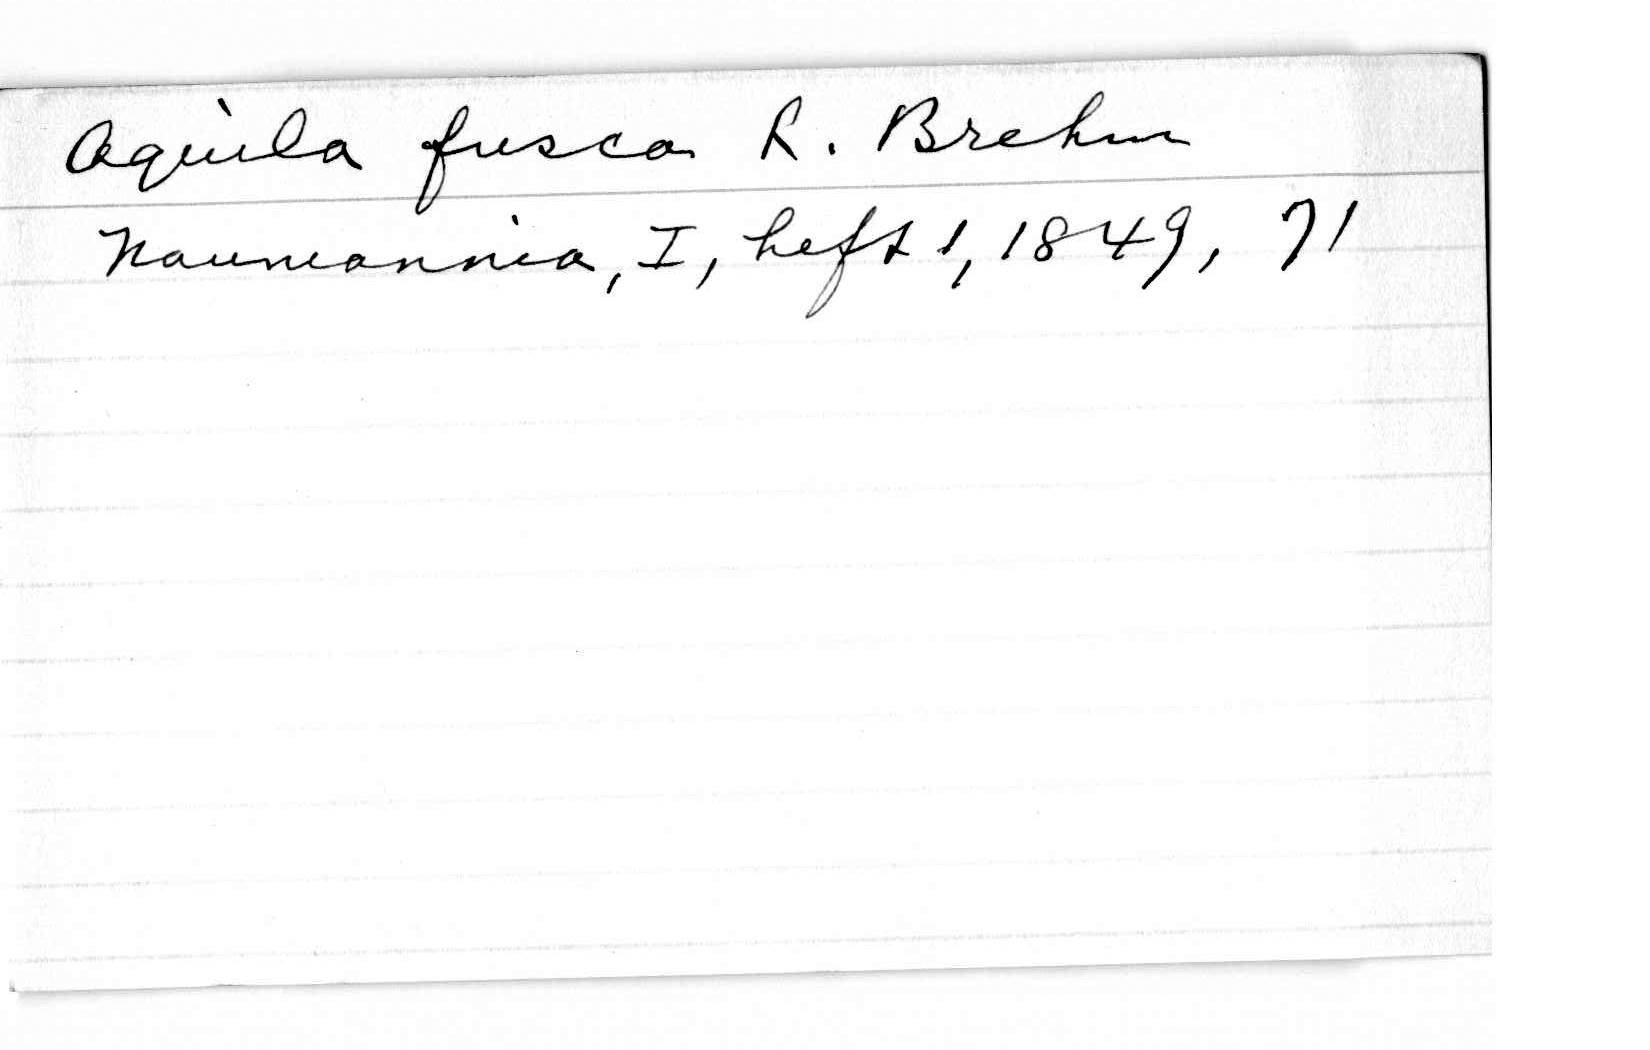 Aquila fusca R. Brehm
Naumannia, I, heft 1, 1849, 71